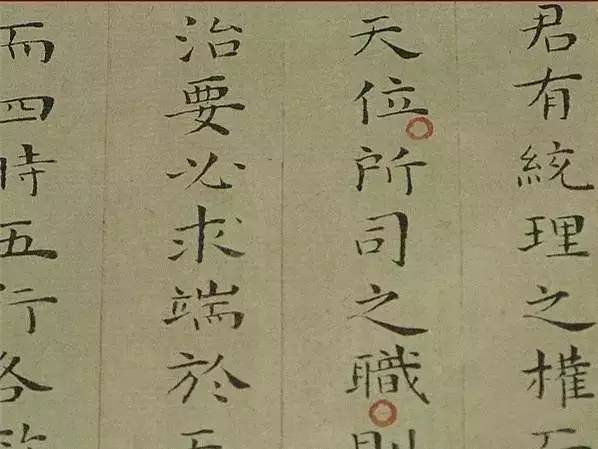 君有統理之權
天位所司之職則
治要必求端於天
而四時五行各